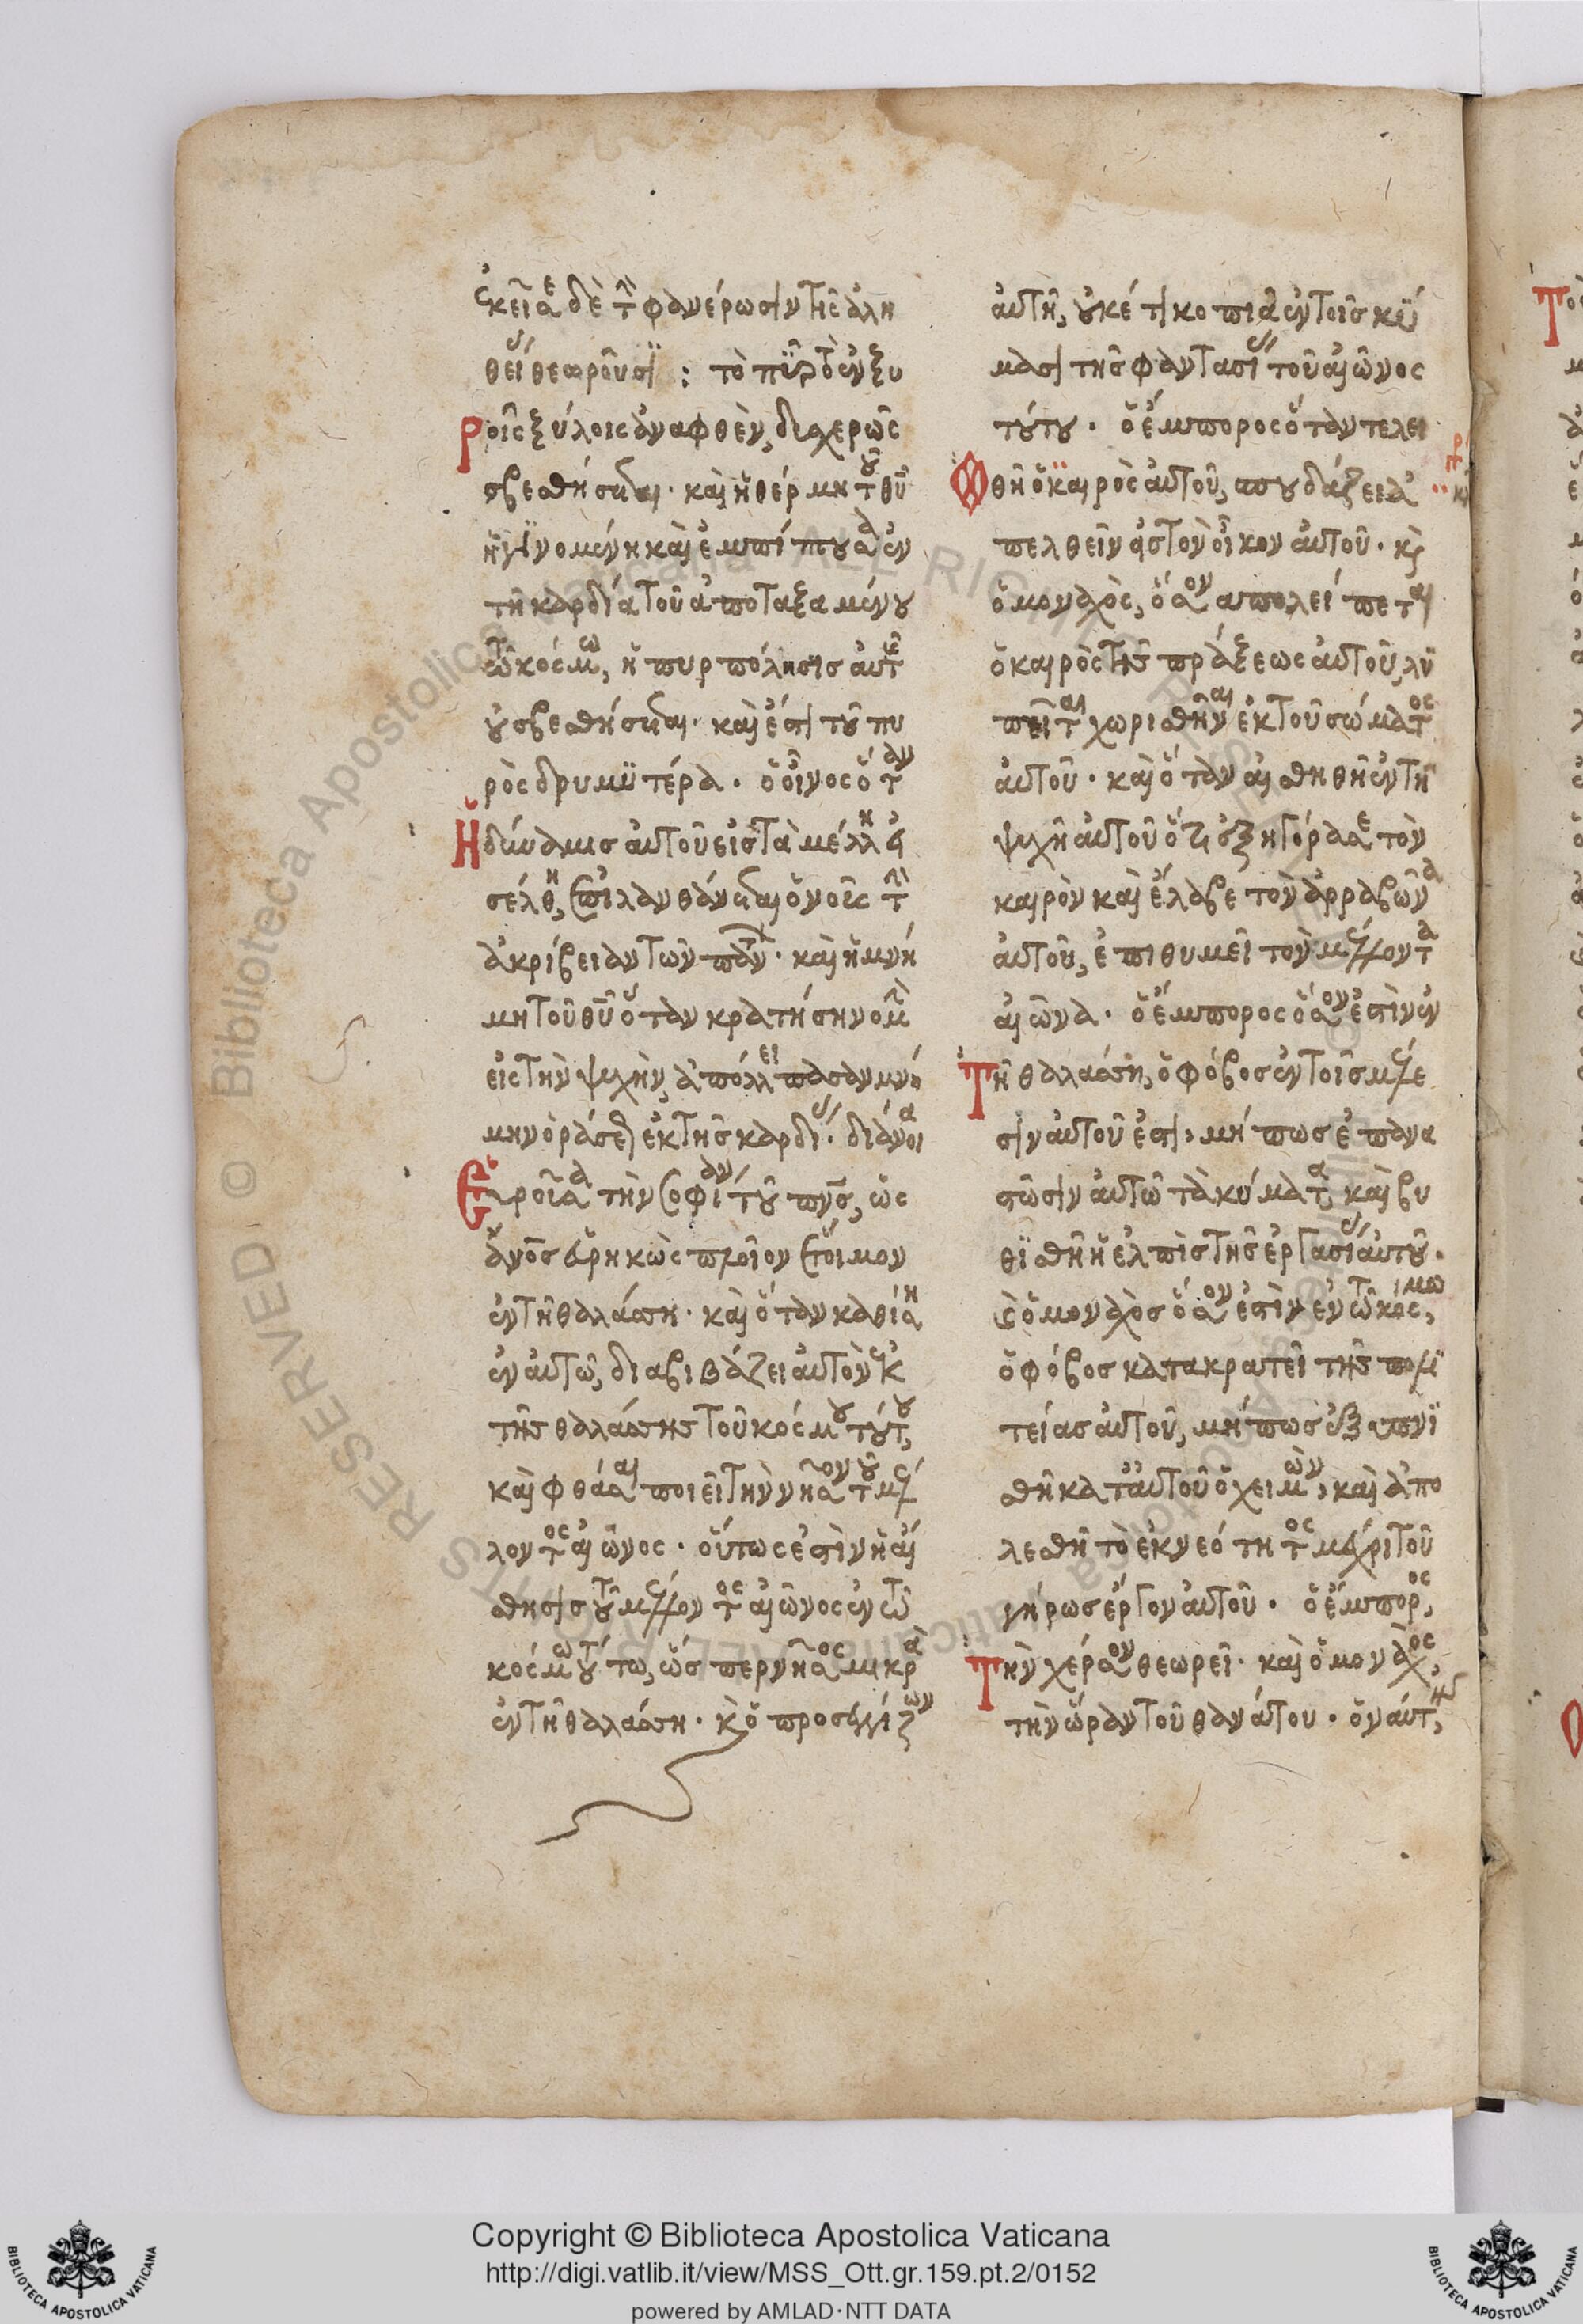 ἐκεῖσε δὲ τὴν φανέρωσιν τῆς ἀλη
θείας θεωροῦσι : τὸ πῦρ τὸ ἐν ξυ
ροῖς ξύλοις ἀναφθὲν, δυσχερῶς
σβεσθήσεται · καὶ ἡ θέρμη τοῦ θῦ
ἡ γινομένη καὶ ἐμπίπτουσα ἐν
τῇ καρδία τοῦ ἀποταξαμένου
τῶ κόσμω, ἡ πυρπόλησις αὐτῆς
οὐ σβεσθήσεται · καὶ ἔστι τοῦ πυ
ρὸς δρυμϋτέρα · ὁ οἴνος ὅταν
Ἡ δύναμις αὐτοῦ εἰς τὰ μέλη εἰ
σέλθη, ἐπιλανθάνεται ὁ νοῦς τὴν
ἀκρίβειαν τῶν πάντων · καὶ ἡ μνή
μη τοῦ θῦ ὅταν κρατήση νομὴ
εἰς τὴν ψυχὴν, ἀπόλλει πᾶσαν μνή
μην ὁράσεως ἐκ τῆς καρδίας · διάνοια
Εὑροῦσα τὴν σοφίαν τοῦ πνς, ὡς
ἄνος εὑρηκὼς πλοῖον ἕτοιμον
ἐν τῇ θαλάσση · καὶ ὅταν καθίση
ἐν αὐτῶ, διαβιβάζει αὐτὸν ἐκ
τῆς θαλάσσης τοῦ κόσμου τούτου,
καὶ φθάσαι ποιεῖ τὴν νῆσον τοῦ μέλ
λοντος αἰῶνος · οὕτως ἐστὶν ἡ αἴ
σθησις τοῦ μέλλοντος αἰῶνος ἐν τῶ
κόσμω τούτω, ὥσπερ νῆσος μικρὰ
ἐν τῇ θαλάσση · κὶ ὁ προσεγγίζων
αὐτῆ, οὐκέτι κοπιᾶ ἐν τοῖς κύ
μασι τῆς φαντασίας τοῦ αἰῶνος
τούτου · ὁ ἔμπορος ὅταν τελει
ωθῆ ὁ καιρὸς αὐτοῦ, σπουδάζει ἀ
πελθεῖν εἰς τὸν οἶκον αὐτοῦ · καὶ
ὁ μοναχὸς, ὅσον ἀπολείπεται
ὁ καιρὸς τῆς πράξεως αὐτοῦ, λυ
πεῖται χωρισθῆναι ἐκ τοῦ σώματος
αὐτοῦ · καὶ ὅταν αἰσθηθῆ ἐν τῆ
ψυχῆ αὐτοῦ ὅτι ἐξηγόρασε τὸν
καιρὸν καὶ ἔλαβε τὸν ἀρραβῶνα
αὐτοῦ, ἐπιθυμεῖ τὸν μέλλοντα
αἰῶνα · ὁ ἔμπορος ὅσον ἐστὶν ἐν
Τῆ θαλάσση, ὁ φόβος ἐν τοῖς μέλε
σιν αὐτοῦ ἐστι, μήπως ἐπανα
στῶσιν αὐτῶ τὰ κύματα, καὶ βυ
θϊσθῆ ἡ ἐλπὶς τῆς ἐργασίας αὐτοῦ ·
καὶ ὁ μοναχὸς ὅσον ἐστὶν ἐν τῶ κόσμω,
ὁ φόβος κατακρατεῖ τῆς πολϊ
τείας αὐτοῦ, μήπως ἐξυπνϊ
σθῆ κατ' αὐτοῦ ὁ χειμὼν, καὶ ἀπο
λεσθῆ τὸ ἐκ νεότητος μέχρι τοῦ
γήρως ἔργον αὐτοῦ · ὁ ἔμπορος,
Τὴν χέρσον θεωρεῖ · καὶ ὁ μοναχὸς,
τὴν ὥραν τοῦ θανάτου · ὁ ναύτης,
Copyright © Biblioteca Apostolica Vaticana
http://digi.vatlib.it/view/MSS_Ott.gr.159.pt.2/0152
powered by AMLAD·NTT DATA